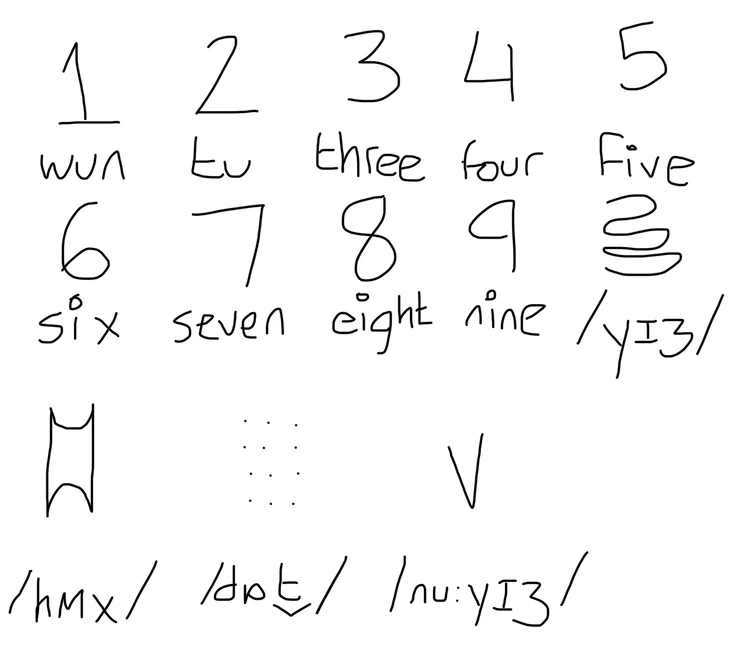 1 2 3 4 5
wun tu three four five
6 7 8 9
six seven eight nine /yɪʒ/
/hʍx/ /dɒt̬/ /nu:yɪʒ/